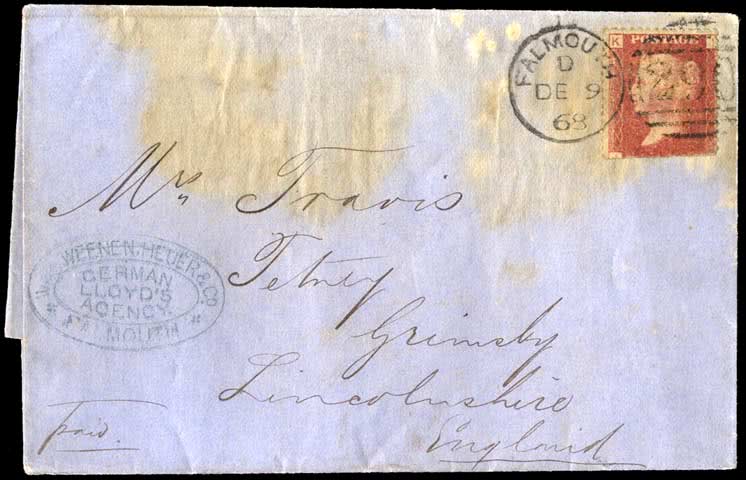 FALMOUTH
D
DE 9
68
K POSTAGE
Mrs Travis
Tetney
Grimsby
Lincolnshire
England
WEENEN, HEUER & CO
GERMAN
LLOYD'S
AGENCY.
FALMOUTH
paid